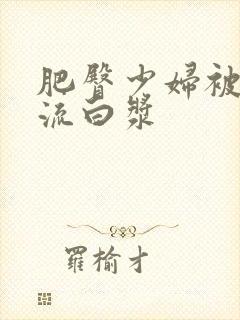 肥臀少婦被
流白漿
羅榆才